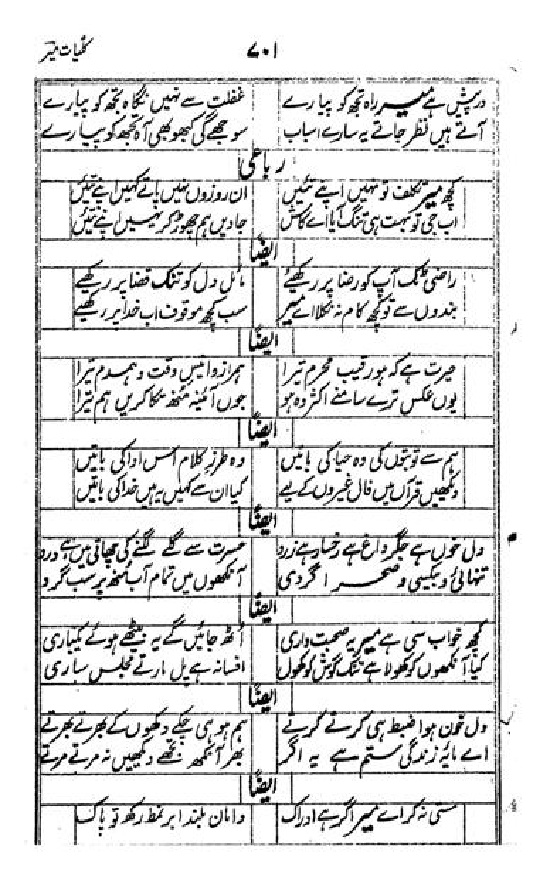 کلیات میر ۷۰۱
درپیش ہے میر راہ تجھ کو پیارے غفلت سے نہیں نگاہ تجھ کو پیارے
آتے ہیں نظر جاتے یہ سارے اسباب سوجھے گی کبھو بھی آہ تجھ کو پیارے
رباعی
کچھ میر تکلف تو نہیں اپنے تئیں ان روزوں نہیں پاتے کہیں اپنے تئیں
اب جی تو بہت ہی تنگ آیا اے کاش جاویں ہم چھوڑ کر یہیں اپنے تئیں
ایضاً
راضی ٹک آپ کو رضا پر رکھیے مائل دل کو تنک قضا پر رکھیے
بندوں سے تو کچھ کام نہ نکلا اے میر سب کچھ موقوف اب خدا پر رکھیے
ایضاً
حیرت ہے کہ ہو رقیب محرم تیرا ہمراز و انیس وقت و ہمدم تیرا
یوں عکس ترے سامنے اکثر وہ ہو جوں آئینہ منھ تکا کریں ہم تیرا
ایضاً
ہم سے تو بتوں کی وہ حیا کی باتیں وہ طرز کلام اس ادا کی باتیں
دیکھیں قرآں میں فال غیروں کے لیے کیا ان سے کہیں یہ ہیں خدا کی باتیں
ایضاً
دل خوں ہے جگر داغ ہے رخسار ہے زرد حسرت سے گلے لگنے کی چھاتی میں ہے درد
تنہائی و بیکسی و صحرا گردی آنکھوں میں تمام آب منھ پر سب گرد
ایضاً
کچھ خواب سی ہے میر یہ صحبت داری اٹھ جائیں گے یہ بیٹھے ہوئے یکباری
کیا آنکھوں کو کھولا ہے تنک گوش کو کھول افسانہ ہے پل مارتے مجلس ساری
ایضاً
دل خون ہوا ضبط ہی کرتے کرتے ہم ہو ہی چکے دکھوں کے بھرتے بھرتے
اے مایہ زندگی ستم ہے یہ اگر بھر آنکھ تجھے دیکھیں نہ مرتے مرتے
ایضاً
مستی نہ کر اے میر اگر ہے ادراک دامان بلند ابر نمط رکھ تو پاک